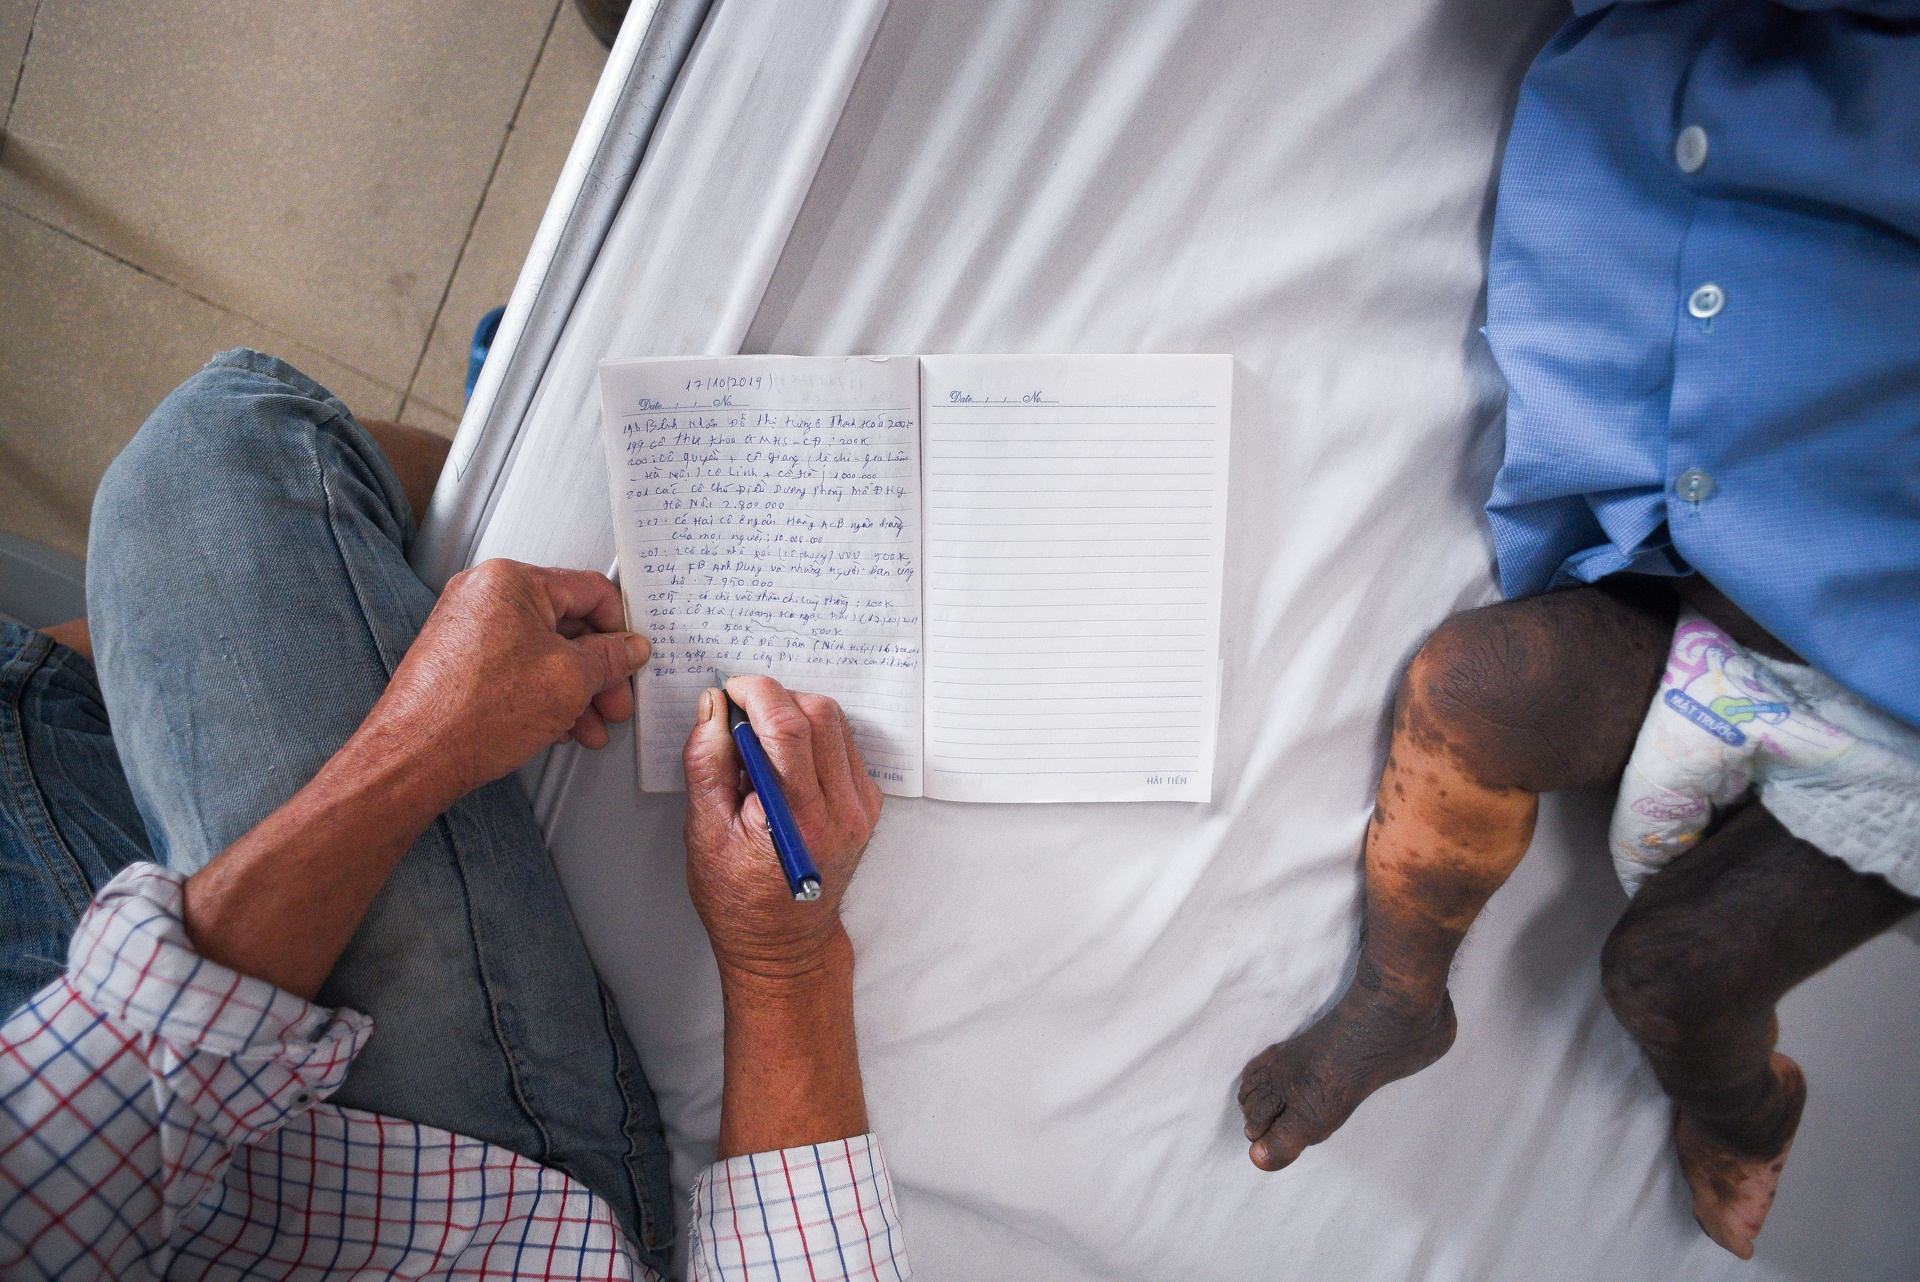 17/10/2019
Date / / No
198 Bệnh Nhân Đỗ Thị Hưng ở Thanh Hoá 200k
199 cô Thu Khoa GMHS - CĐ : 200K
200 : Cô Quyền + Cô Giang ( lệ chi - gia Lâm
Hà Nội ) cô Linh + cô Hà : 1000.000
201 các cô chú Điều Dưỡng phòng mổ ĐKQ
Hà Nội 2.800.000
202 . Có Hai cô ở ngân Hàng ACB ngân hàng
của mọi người : 10.000.000
203 : 2 cô chú nhà (cô phượng) VVV 500K
204 FB Anh Dũng và những người bạn ủng
hộ . 7.950.000
205 : có chị vào thăm chị lấy phòng : 100K
206 . cô Hà ( Hoàng Hà ngọc ) (17/10/2019
207 . ? 500K 500K
208 Nhóm BỒ ĐỀ Tâm ( Ninh Hiệp )
209 gặp cô ở cổng BV : 200K
210 cô
HẢI TIẾN
Date / / No
HẢI TIẾN
MẶT TRƯỚC